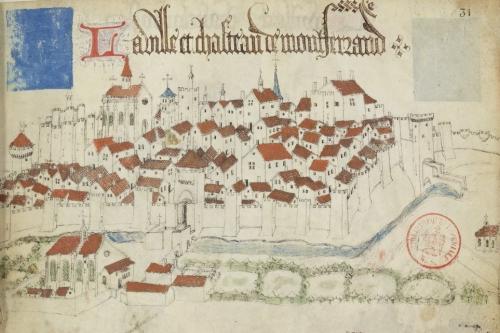 La ville et chasteau de montferrand
31